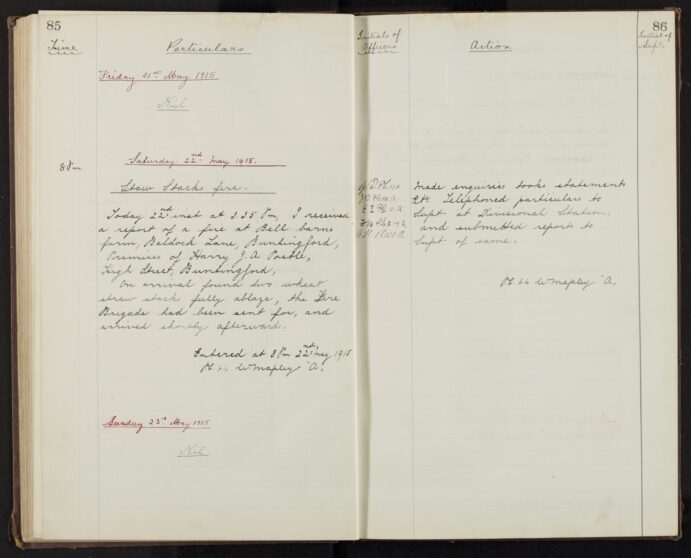 85
Time
Particulars
Friday 21st May 1915
Nil
8 Pm
Saturday 22nd May 1915.
Straw Stacks fire.
Today 22nd inst at 3.35 Pm, I received
a report of a fire at Bell barns
farm, Baldock Lane, Buntingford,
Premises of Harry J. A.
High Street, Buntingford,
On arrival found two wheat
straw stacks fully ablaze, the Fire
Brigade had been sent for, and
arrived shortly afterward.
Entered at 8 Pm 22nd May 1915
PC 64 W Mapley 'A'.
Sunday 23rd May 1915
Nil
86
Initials of
Officers
Action
Initial of
Supt.
Made enquiries took statements
Etc Telephoned particulars to
Supt at Divisional Station,
and submitted reports to
Supt of same.
PC 64 W Mapley 'A'.